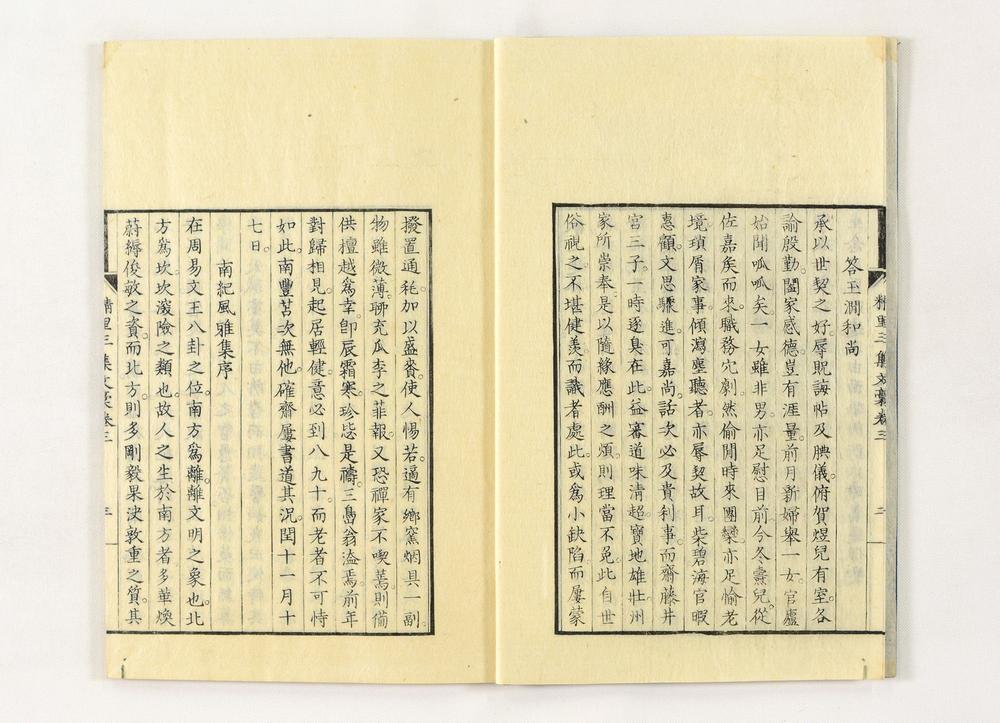 答玉澗和尚
承以世契之好辱貺誨帖及腆儀。俯賀煜兒有室。各
諭殷勤。闔家感德豈有涯量。前月新婦舉一女。官廬
始聞呱呱矣。一女雖非男。亦足慰目前。今冬燾兒。從
佐嘉矣而來。職務冗劇。然偷閒時來團欒。亦足愉老
境。瑣屑家事。傾瀉塵聽者。亦辱契故耳。柴碧海官暇
惠顧。文思驟進。可嘉尚。話次必及貴刹事。而齋藤井
宮三子。一時逐臭在此。益審道味清超。寶地雄壯。州
家所崇奉。是以隨緣應酬之煩。則理當不免。此自世
俗視之不堪健羨。而識者處此。或為小缺陷。而屢蒙
撥置通秏。加以盛餽。使人惕若。適有鄉窯烟具一副。
物雖微薄。聊充瓜李之菲報。又恐禪家不喫蔫。則備
供檀越為幸。卽辰霜寒。珍毖是禱。三島翁溘焉。前年
對歸相見。起居輕健。意必到八九十。而老者不可恃
如此。南豐苫次無他。確齋屢書道其況。閏十一月十
七日。
南紀風雅集序
在周易文王八卦之位。南方爲離。離文明之象也。北
方爲坎。坎濅險之類也。故人之生於南方者。多華煥
蔚縟俊敏之資。而北方則多剛毅果決敦重之質。其
精里三集文稾卷三
二
精里三集文稾卷三
三